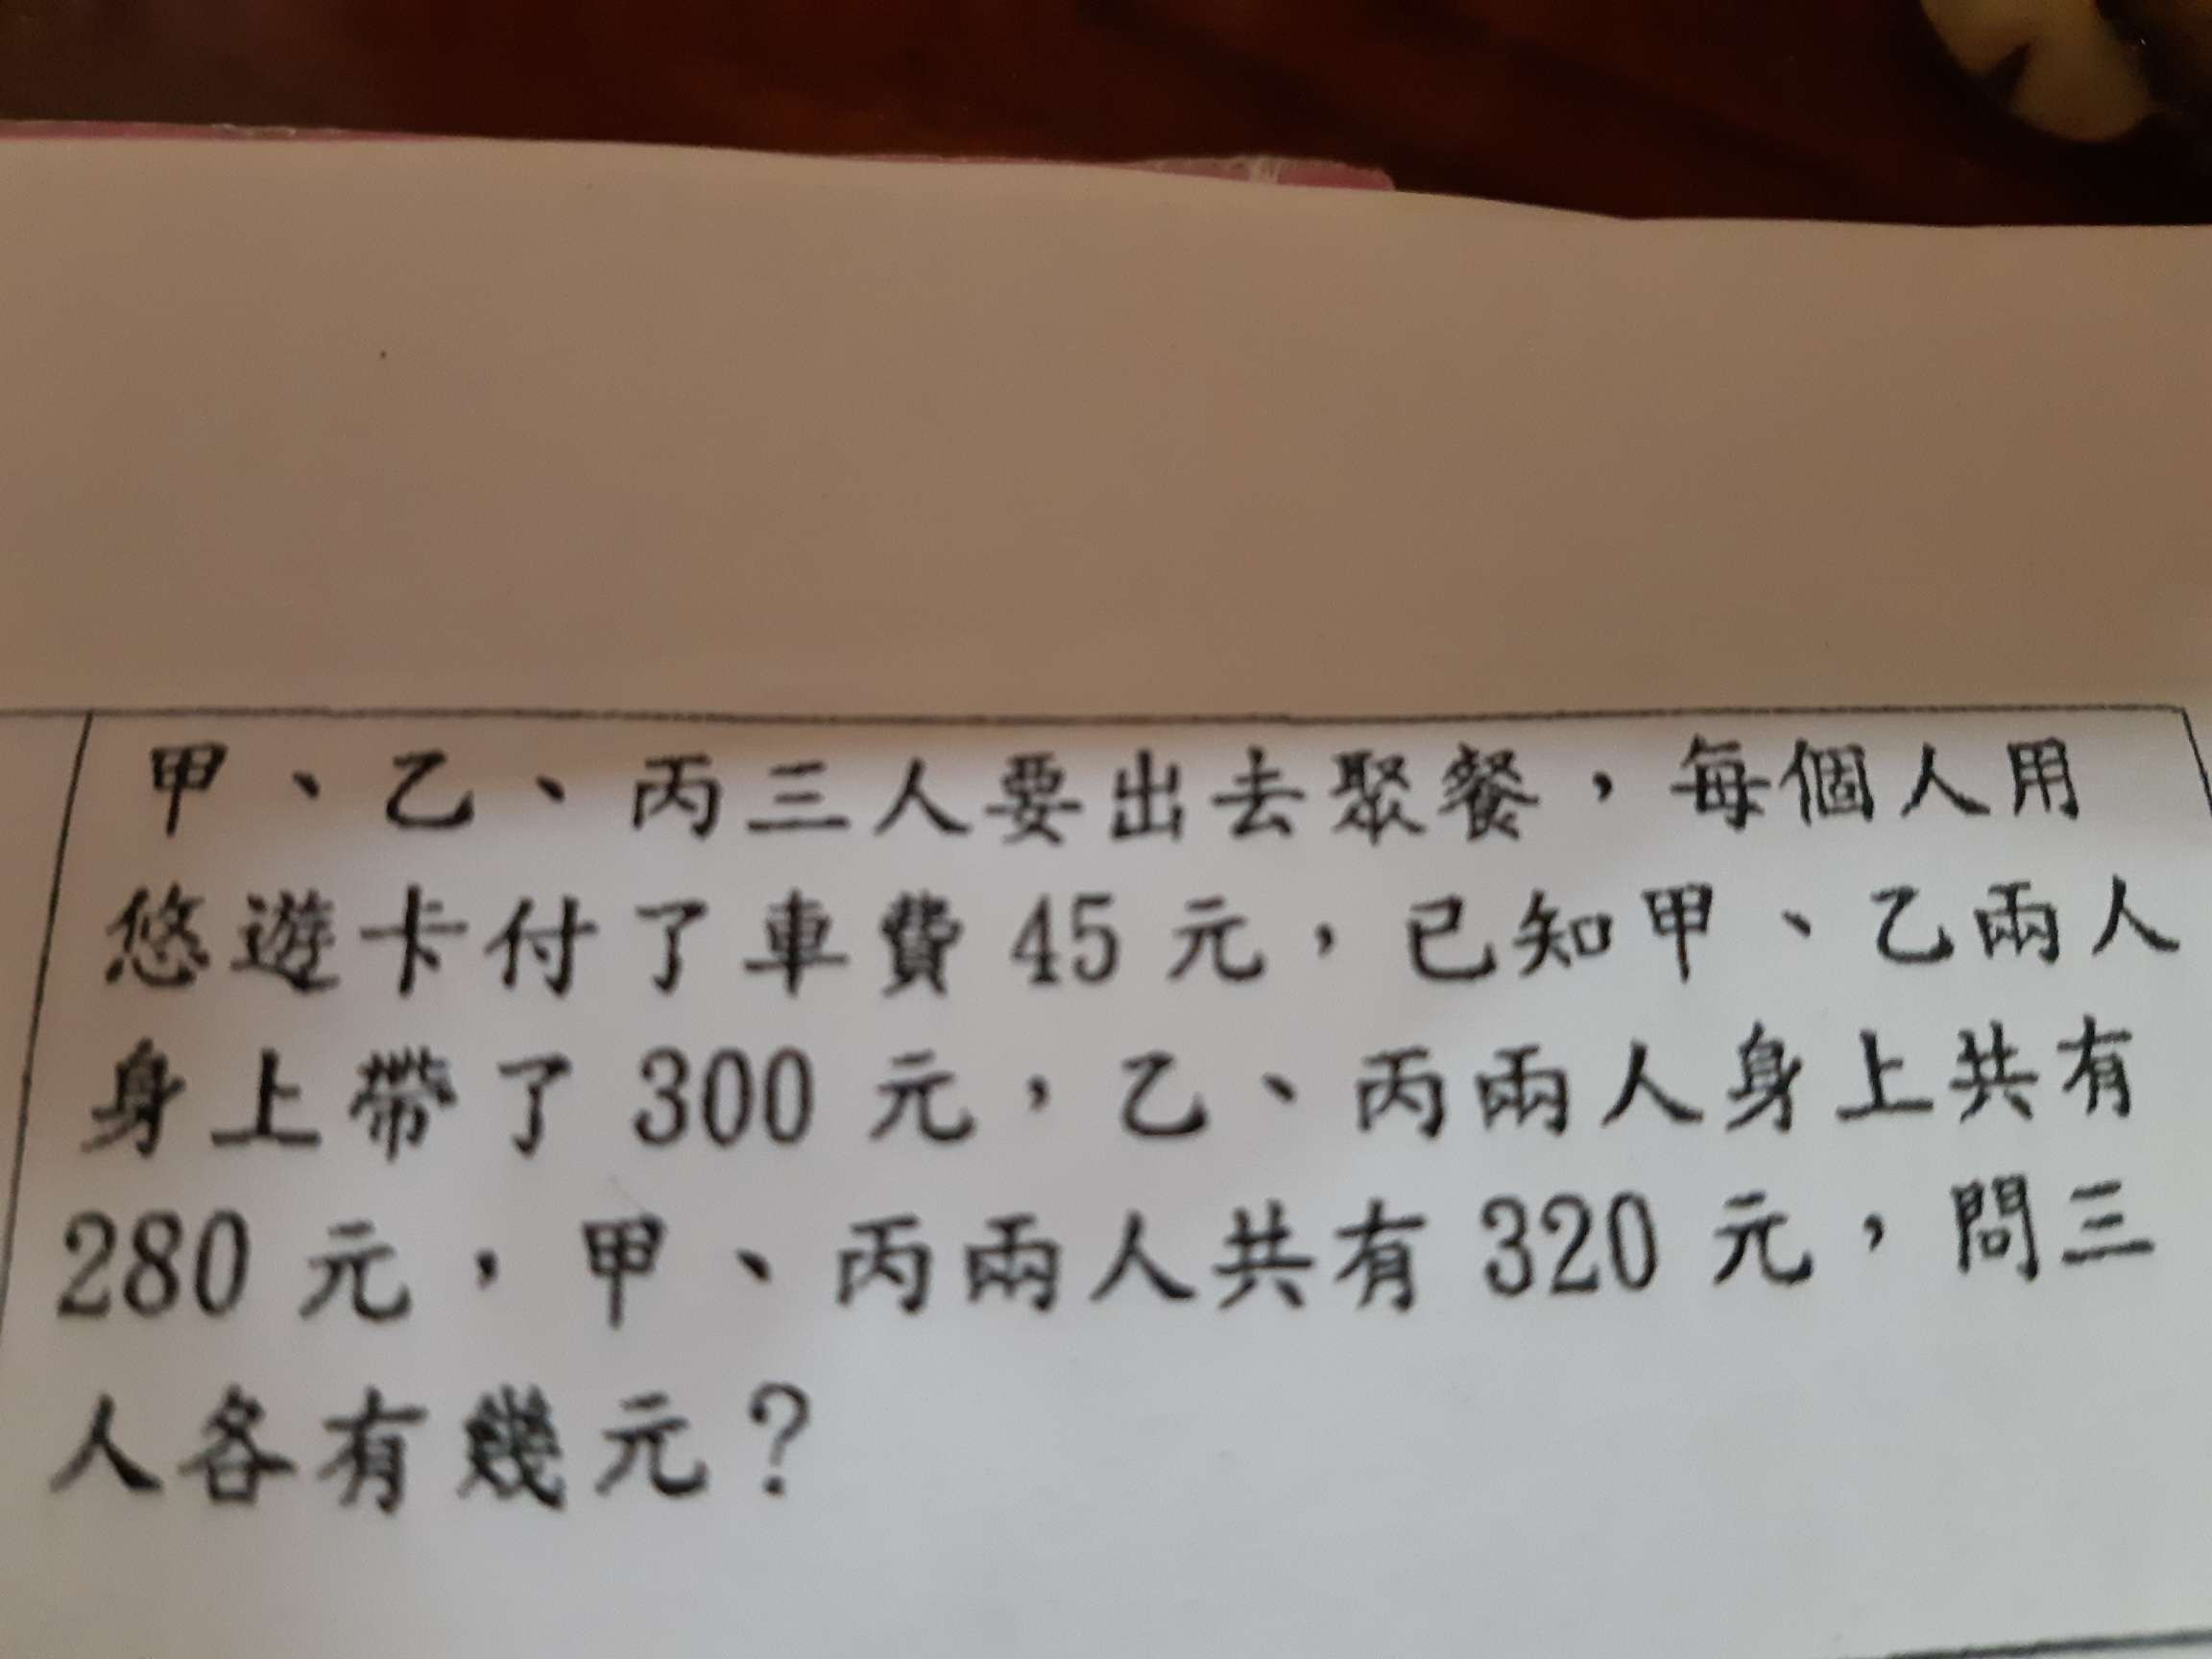 甲、乙、丙三人要出去聚餐，每個人用
悠遊卡付了車費 45 元，已知甲、乙兩人
身上帶了 300 元，乙、丙兩人身上共有
280 元，甲、丙兩人共有 320 元，問三
人各有幾元？